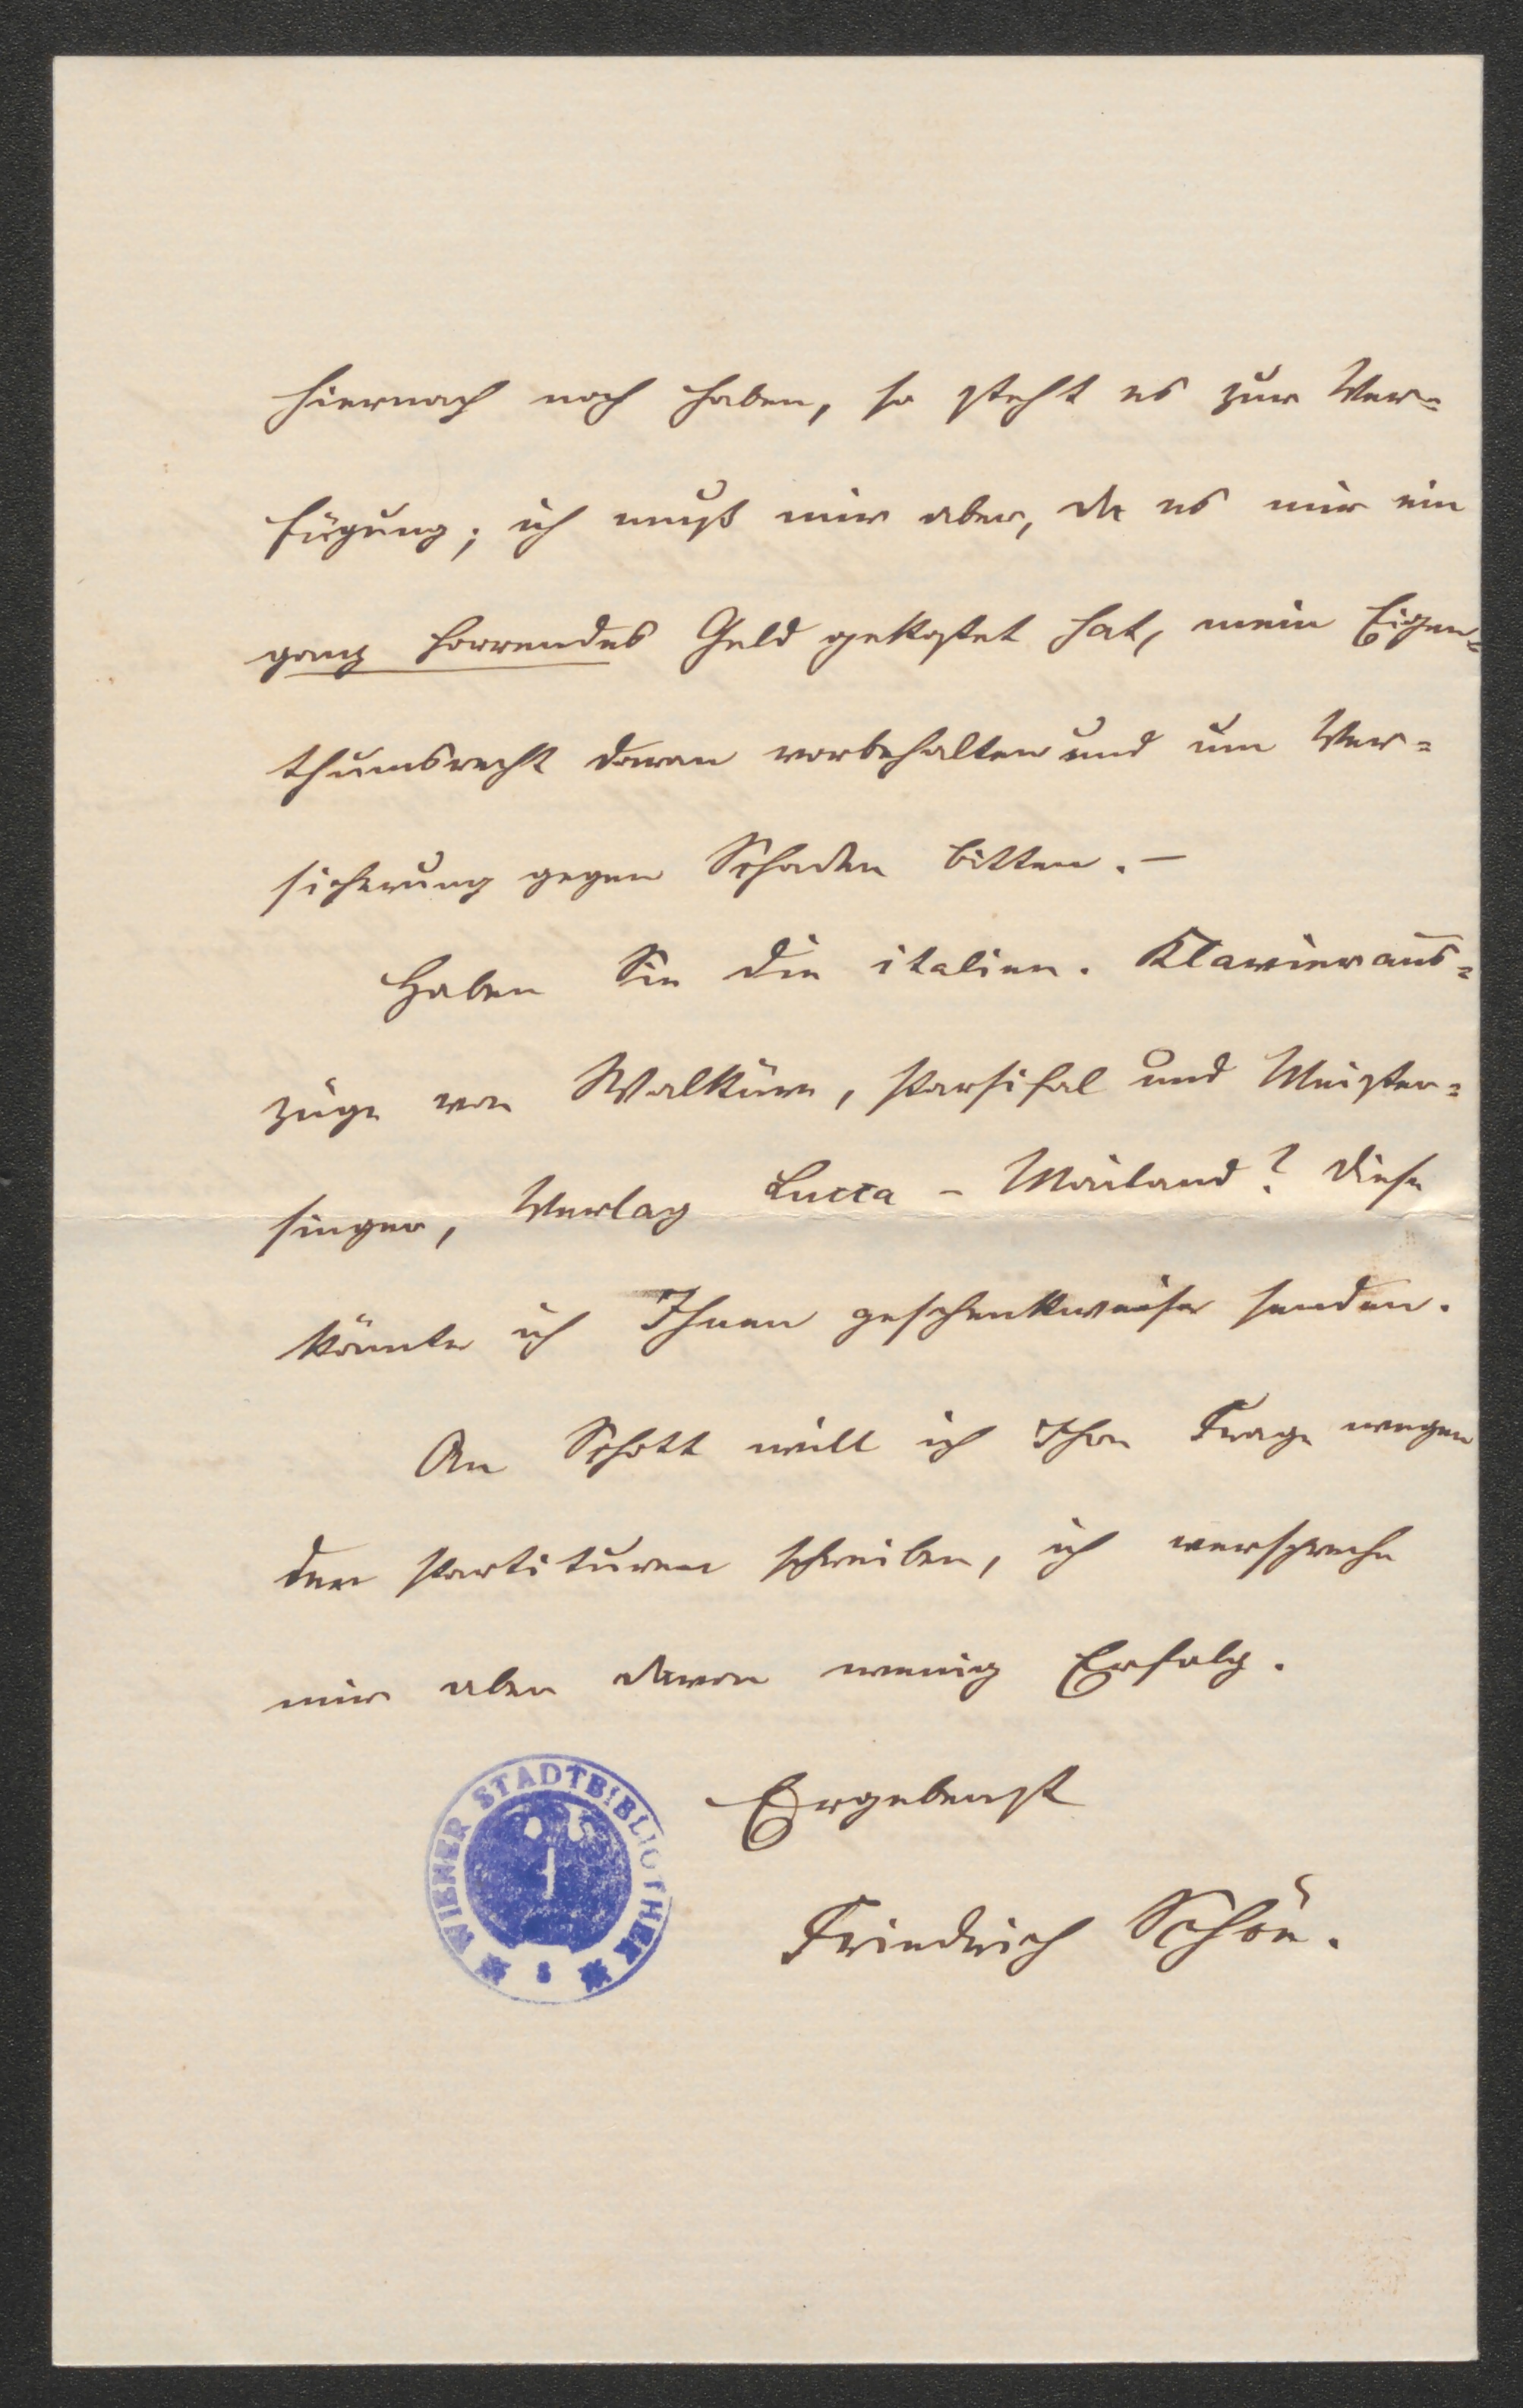 hiernach noch haben, so steht es zur Ver=
fügung; ich muß mir aber, da es mir ein
ganz horrendes Geld gekostet hat, mein Eigen=
thumsrecht daran vorbehalten und um Ver=
sicherung gegen Schaden bitten. –
Haben Sie die italien. Klavieraus=
züge von Walküre, Parsifal und Meister=
singer, Verlag Lucca – Mailand? Diese
könnte ich Ihnen geschenkweise senden.
An Schott will ich Ihre Frage wegen
der Partituren schreiben, ich verspreche
mir aber davon wenig Erfolg.
Ergebenst
Friedrich Schön.
WIENER STADTBIBLIOTHEK